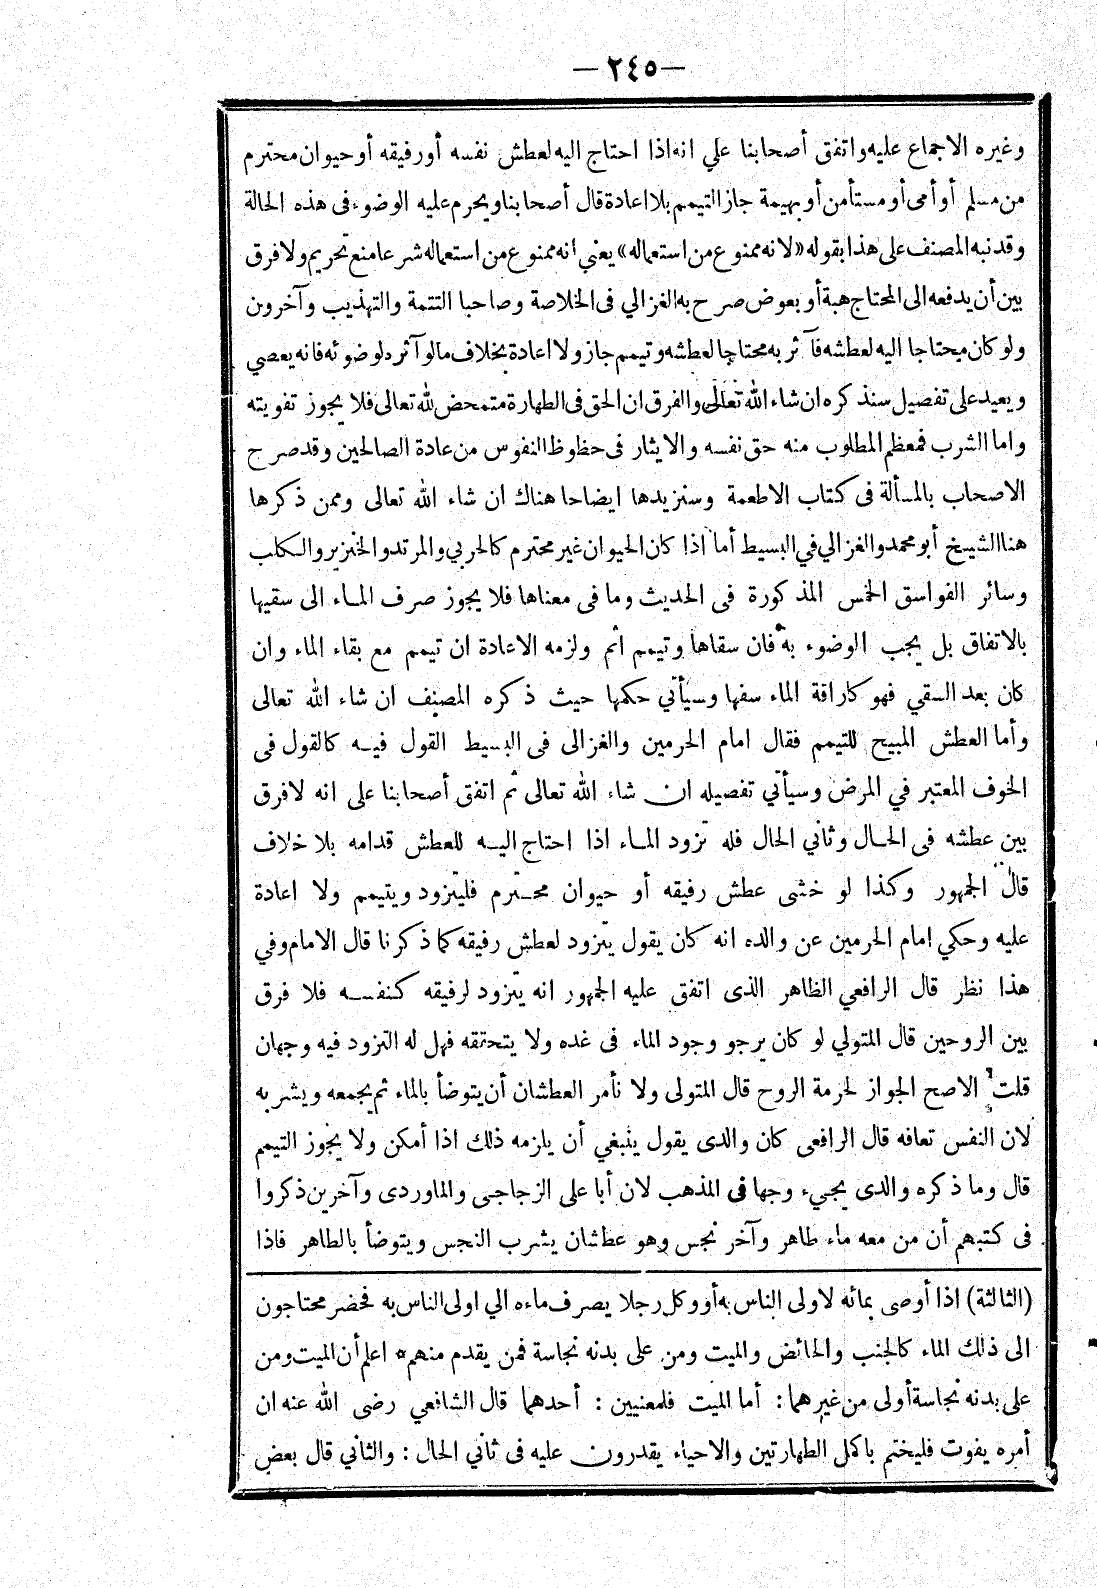 — ٢٤٥ —
وغيره الاجماع عليه واتفق أصحابنا علي انه اذا احتاج اليه لعطش نفسه أو رفيقه أو حيوان محترم
من مسلم أو أمى أو مستأمن أو بهيمة جاز التيمم بلا اعادة قال أصحابنا ويحرم عليه الوضوء فى هذه الحالة
وقد نبه المصنف على هذا بقوله «لانه ممنوع من استعماله» يعني انه ممنوع من استعماله شرعا منع تحريم ولا فرق
بين أن يدفعه الى المحتاج هبة أو بعوض صرح به الغزالي فى الخلاصة وصاحبا التتمة والتهذيب وآخرون
ولو كان محتاجا اليه لعطشه فآثر به محتاجا لعطشه وتيمم جاز ولا اعادة بخلاف مالو آثره لوضوئه فانه يعصي
ويعيد على تفصيل سنذكره ان شاء الله تعالى والفرق ان الحق فى الطهارة متمحض لله تعالى فلا يجوز تفويته
واما الشرب فمعظم المطلوب منه حق نفسه والايثار فى حظوظ النفوس من عادة الصالحين وقد صرح
الاصحاب بالمسألة فى كتاب الاطعمة وسنزيدها ايضاحا هناك ان شاء الله تعالى وممن ذكرها
هنا الشيخ أبو محمد والغزالي في البسيط أما اذا كان الحيوان غير محترم كالحربي والمرتد والخنزير والكلب
وسائر الفواسق الخمس المذكورة فى الحديث وما فى معناها فلا يجوز صرف الماء الى سقيها
بالاتفاق بل يجب الوضوء به فان سقاها وتيمم أثم ولزمه الاعادة ان تيمم مع بقاء الماء وان
كان بعد السقي فهو كاراقة الماء سفها وسيأتي حكمها حيث ذكره المصنف ان شاء الله تعالى
وأما العطش المبيح للتيمم فقال امام الحرمين والغزالى فى البسيط القول فيه كالقول فى
الخوف المعتبر في المرض وسيأتي تفصيله ان شاء الله تعالى ثم اتفق أصحابنا على انه لا فرق
بين عطشه فى الحال وثاني الحال فله تزود الماء اذا احتاج اليه للعطش قدامه بلا خلاف
قال الجمهور وكذا لو خشى عطش رفيقه أو حيوان محترم فليتزود ويتيمم ولا اعادة
عليه وحكي امام الحرمين عن والده انه كان يقول يتزود لعطش رفيقه كما ذكرنا قال الامام وفي
هذا نظر قال الرافعي الظاهر الذى اتفق عليه الجمهور انه يتزود لرفيقه كنفسه فلا فرق
بين الروحين قال المتولي لو كان يرجو وجود الماء فى غده ولا يتحتقه فهل له التزود فيه وجهان
قلت الاصح الجواز لحرمة الروح قال المتولى ولا نأمر العطشان أن يتوضأ بالماء ثم يجمعه ويشربه
لان النفس تعافه قال الرافعى كان والدى يقول ينبغي أن يلزمه ذلك اذا أمكن ولا يجوز التيمم
قال وما ذكره والدى يجىء وجها فى المذهب لان أبا على الزجاجى والماوردى وآخرين ذكروا
فى كتبهم أن من معه ماء طاهر وآخر نجس وهو عطشان يشرب النجس ويتوضأ بالطاهر فاذا
(الثالثة) اذا أوصى بمائه لاولى الناس به أو وكل رجلا يصرف ماءه الي اولى الناس به فحضر محتاجون
الى ذلك الماء كالجنب والحائض والميت ومن على بدنه نجاسة فمن يقدم منهم * اعلم أن الميت ومن
على بدنه نجاسة أولى من غيرهما : أما الميت فلمعنيين : أحدهما قال الشافعي رضى الله عنه ان
أمره يفوت فليختم باكمل الطهارتين والاحياء يقدرون عليه فى ثاني الحال : والثاني قال بعض